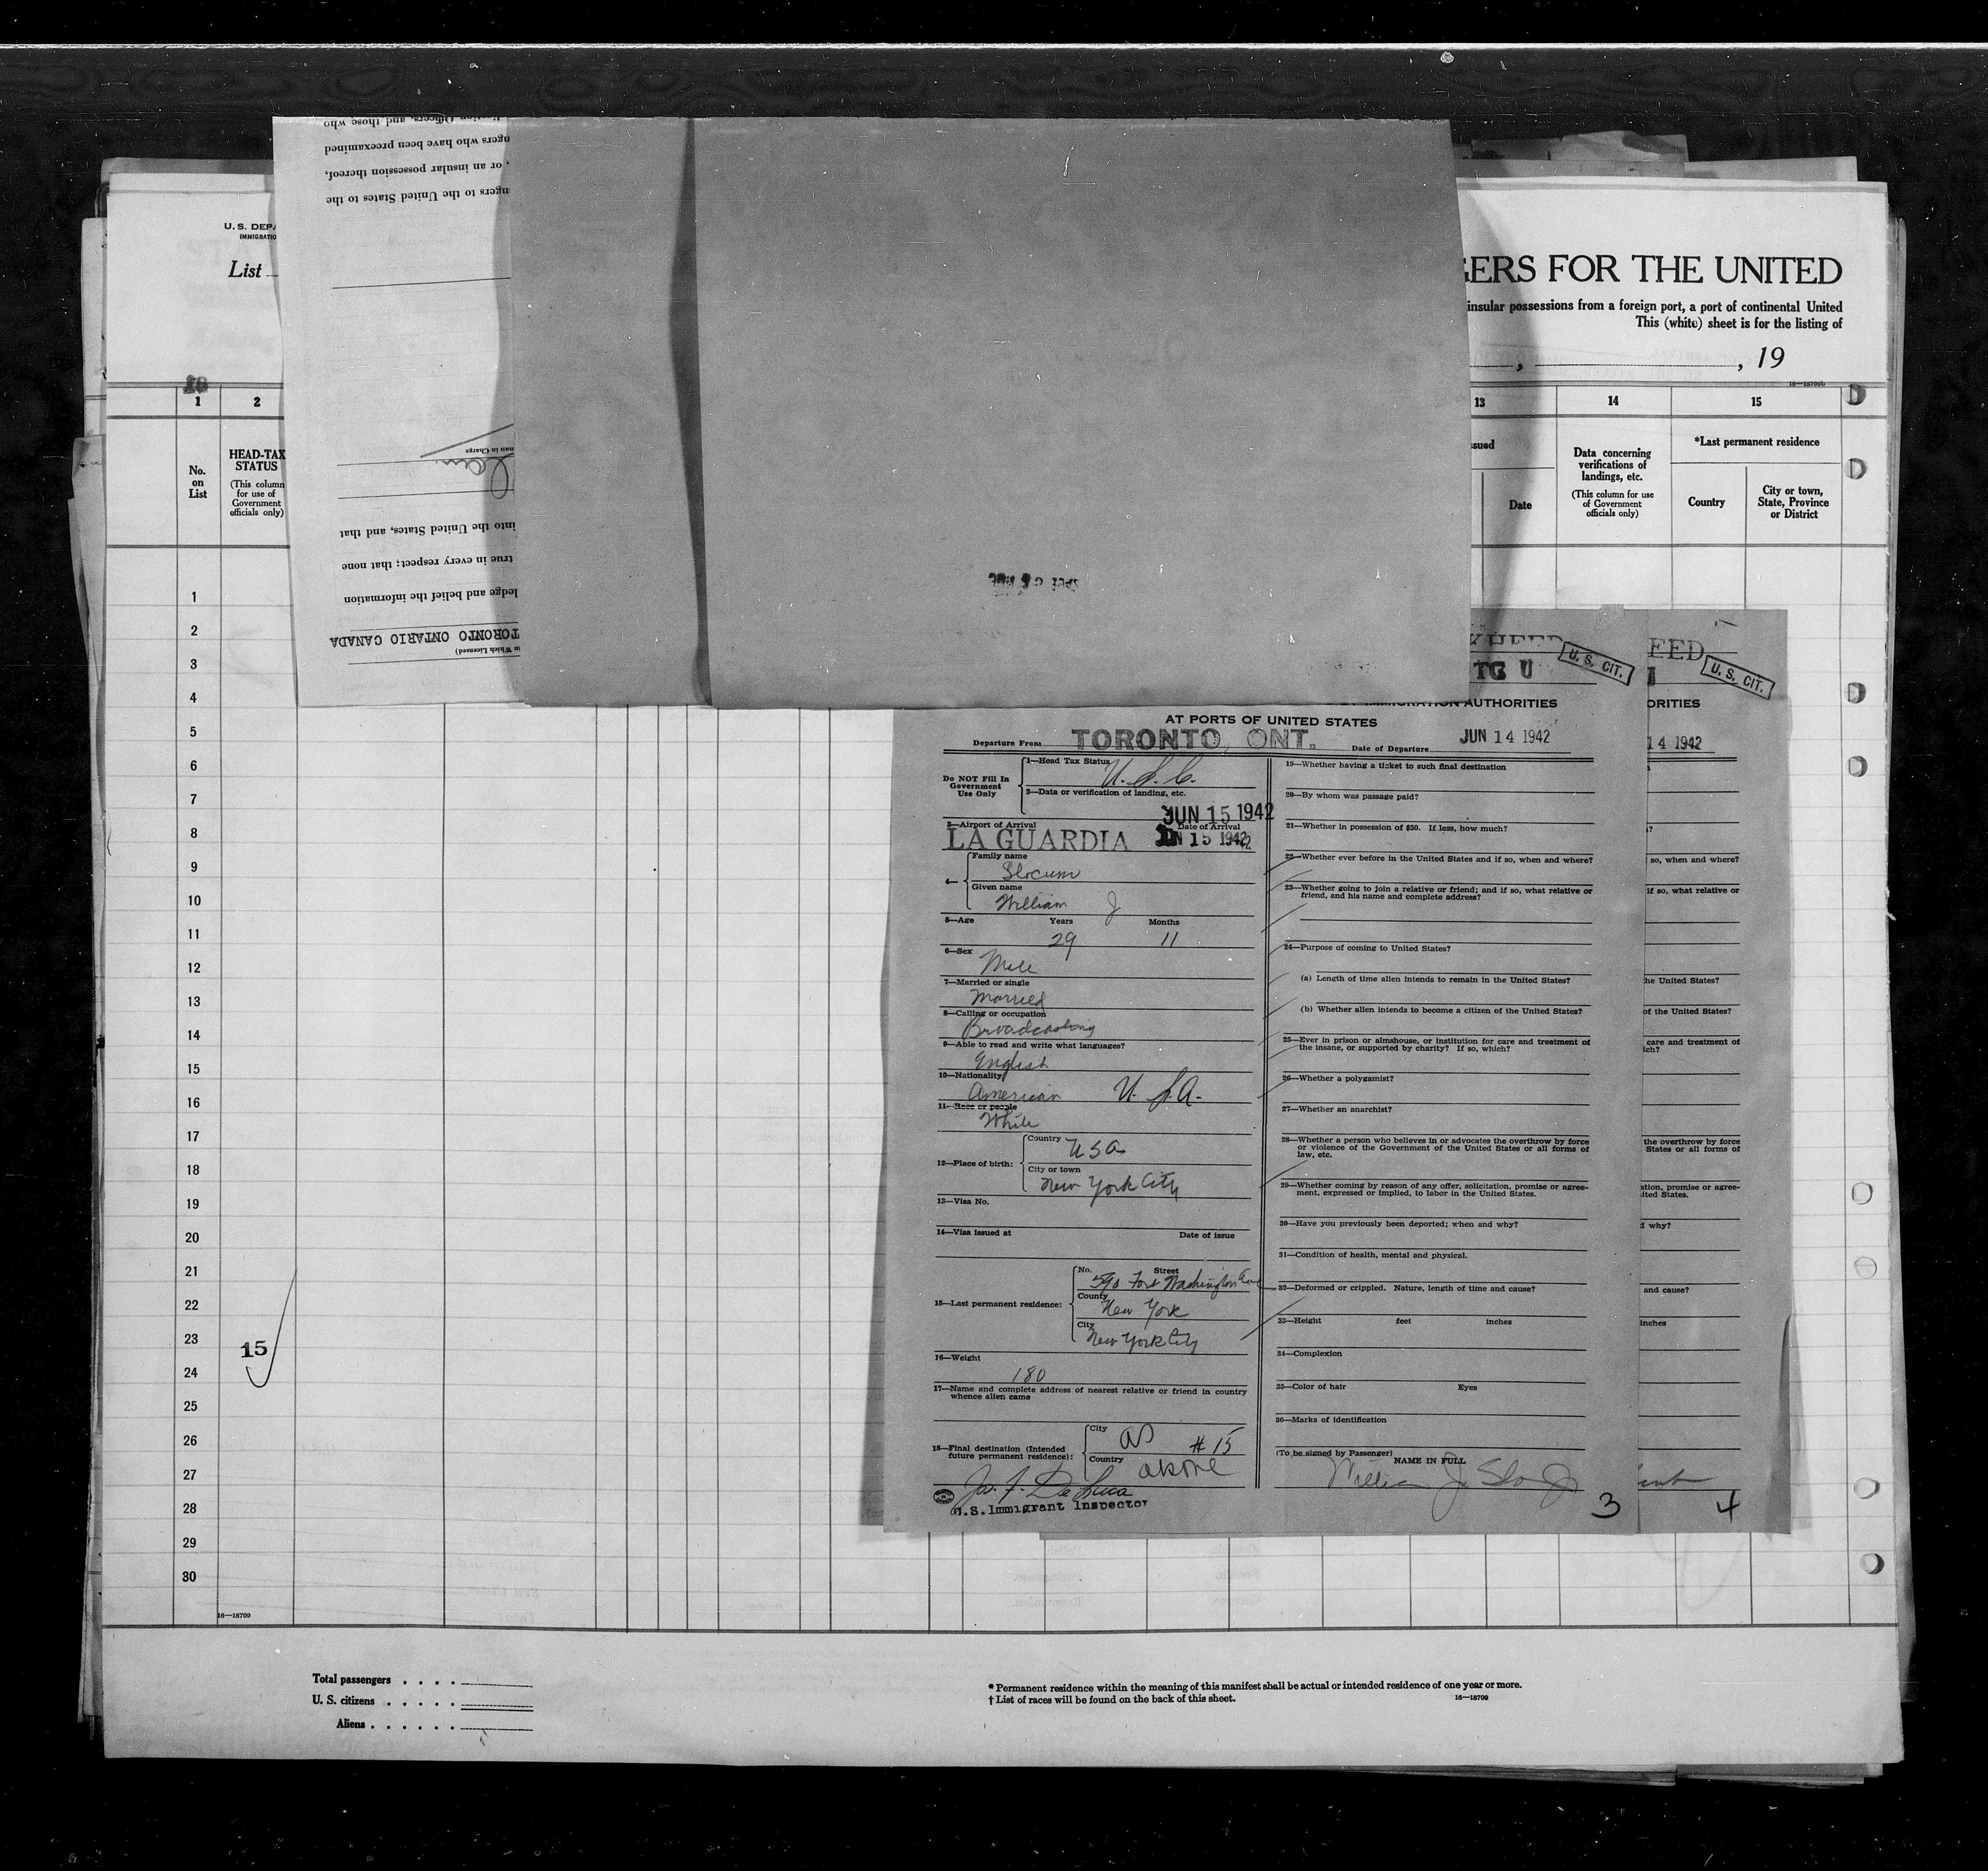 U. S. DEPA
IMMIGRATIO
List
GERS FOR THE UNITED
insular possessions from a foreign port, a port of continental United
This (white) sheet is for the listing of
, 19
16—18709b
1
2
13
14
15
No.
on
List
HEAD-TAX
STATUS
(This column
for use of
Government
officials only)
ssued
Date
Data concerning
verifications of
landings, etc.
(This column for use
of Government
officials only)
*Last permanent residence
Country
City or town,
State, Province
or District
in Which Licensed)
TORONTO ONTARIO CANADA
ledge and belief the information
true in every respect; that none
into the United States, and that
man in Charge
ngers to the United States to the
, or an insular possession thereof,
ngers who have been preexamined
Officers, and those who
1
2
3
4
5
6
7
8
9
10
11
12
13
14
15
16
17
18
19
20
21
22
23
24
25
26
27
28
29
30
15
16—18709
TG U
U. S. CIT.
IMMIGRATION AUTHORITIES
AT PORTS OF UNITED STATES
Departure From TORONTO, ONT. Date of Departure JUN 14 1942
Do NOT Fill In
Government
Use Only
1—Head Tax Status U.S.C.
2—Data or verification of landing, etc.
JUN 15 1942
3—Airport of Arrival Date of Arrival
LA GUARDIA JUN 15 1942
4— Family name
Slocum
Given name
William J
5—Age Years Months
29 11
6—Sex
Male
7—Married or single
Married
8—Calling or occupation
Broadcasting
9—Able to read and write what languages?
English
10—Nationality
American U.S.A.
11—Race or people
White
12—Place of birth:
Country
USA
City or town
New York City
13—Visa No.
14—Visa issued at Date of issue
15—Last permanent residence:
No. Street
590 Fort Washington Ave
County
New York
City
New York City
16—Weight
180
17—Name and complete address of nearest relative or friend in country
whence alien came
18—Final destination (Intended
future permanent residence):
City
as #15
Country
above
Jos. F. De Luca
U.S. Immigrant Inspector
19—Whether having a ticket to such final destination
20—By whom was passage paid?
21—Whether in possession of $50. If less, how much?
22—Whether ever before in the United States and if so, when and where?
23—Whether going to join a relative or friend; and if so, what relative or
friend, and his name and complete address?
24—Purpose of coming to United States?
(a) Length of time alien intends to remain in the United States?
(b) Whether alien intends to become a citizen of the United States?
25—Ever in prison or almshouse, or institution for care and treatment of
the insane, or supported by charity? If so, which?
26—Whether a polygamist?
27—Whether an anarchist?
28—Whether a person who believes in or advocates the overthrow by force
or violence of the Government of the United States or all forms of
law, etc.
29—Whether coming by reason of any offer, solicitation, promise or agree-
ment, expressed or implied, to labor in the United States.
30—Have you previously been deported; when and why?
31—Condition of health, mental and physical.
32—Deformed or crippled. Nature, length of time and cause?
33—Height feet inches
34—Complexion
35—Color of hair Eyes
36—Marks of identification
(To be signed by Passenger)
NAME IN FULL
William J. Slo Jr
3
EED
U. S. CIT.
ORITIES
14 1942
?
so, when and where?
if so, what relative or
he United States?
of the United States?
care and treatment of
ich?
the overthrow by force
States or all forms of
ation, promise or agree-
ited States.
d why?
and cause?
inches
4
Total passengers . . . .
U. S. citizens . . . . .
Aliens . . . . . .
* Permanent residence within the meaning of this manifest shall be actual or intended residence of one year or more.
† List of races will be found on the back of this sheet.
16—18709